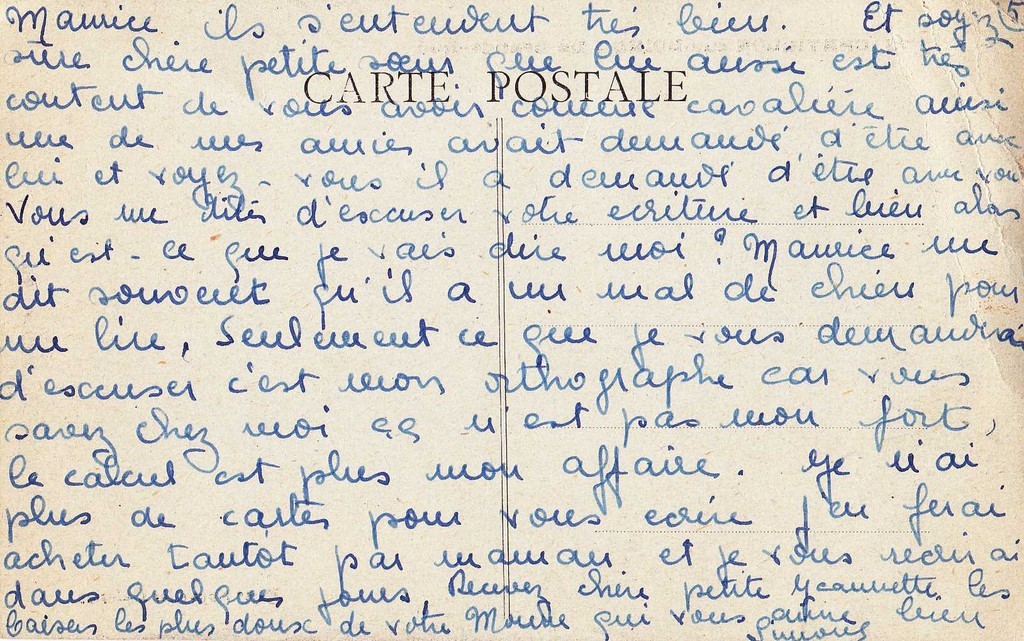 Maurice ils s'entendent très bien. Et soyez 5
sûre chère petite sœur que lui aussi est très
CARTE POSTALE
content de vous avoir comme cavalière ainsi
une de mes amies avait demandé d'être avec
lui et voyez-vous il a demandé d'être avec vous
Vous me dites d'excuser votre ecriture et bien alors
qu'est-ce que je vais dire moi ? Maurice me
dit souvent qu'il a un mal de chien pour
me lire, Seulement ce que je vous demanderai
d'excuser c'est mon orthographe car vous
savez chez moi ça n'est pas mon fort,
le calcul est plus mon affaire. Je n'ai
plus de cartes pour vous ecrire j'en ferai
acheter tantôt par maman et je vous recrirai
dans quelques jours Recevez chère petite Jeannette les
baisers les plus doux de votre qui vous aime bien
Simone